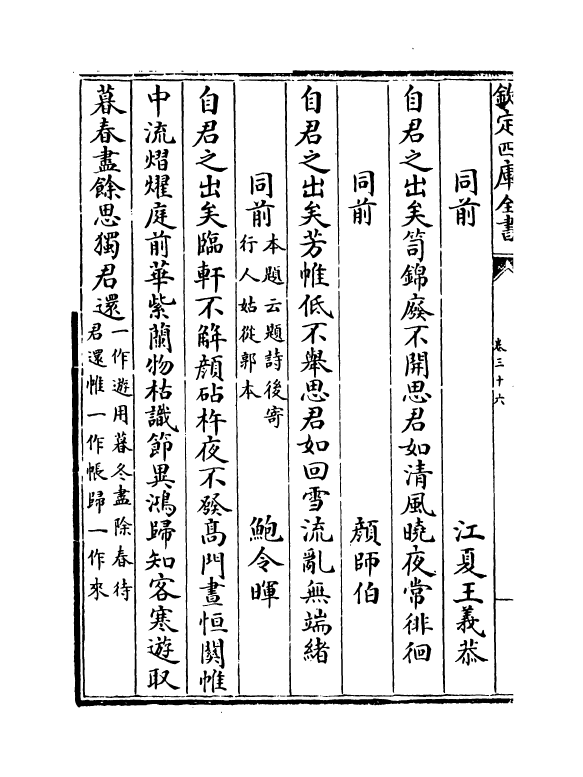 欽定四庫全書
卷三十六
同前 江夏王義恭
自君之出矣笥錦廢不開思君如清風曉夜常徘徊
同前 顔師伯
自君之出矣芳帷低不舉思君如回雪流亂無端緒
同前 本題云題詩後寄 鮑令暉
行人姑從郭本
自君之出矣臨軒不解顔砧杵夜不發髙門晝恒關帷
中流熠燿庭前華紫蘭物枯識節異鴻歸知客寒遊取
暮春盡餘思獨君還 一作遊用暮冬盡除春待
君還帷一作帳歸一作來